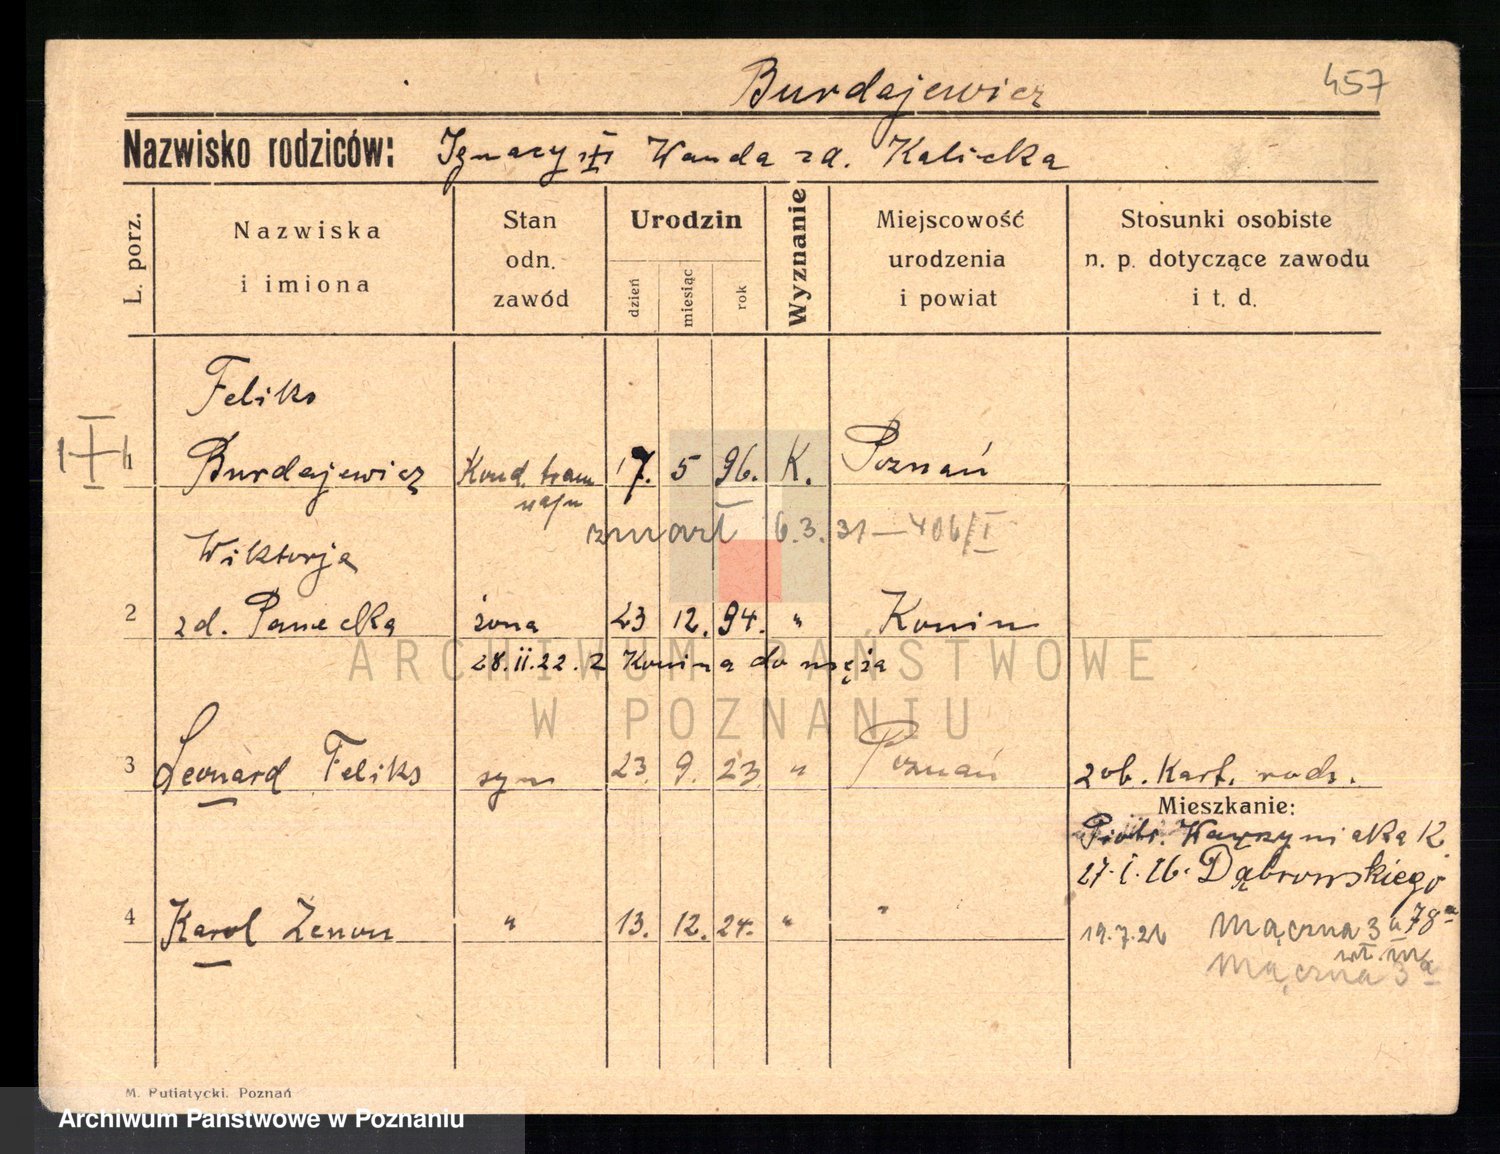 Burdajewicz 457
Nazwisko rodziców: Ignacy Wanda zd. Kalicka
L. porz.
Nazwiska i imiona
Stan odn. zawód
Urodzin
dzień
miesiąc
rok
Wyznanie
Miejscowość urodzenia i powiat
Stosunki osobiste n. p. dotyczące zawodu i t. d.
Feliks
1 Burdajewicz Kond. tram 17. 5 96. K. Poznań
zmarł 6.3.31 — 406/I
Wiktorja
2 zd. Panecka żona 23 12. 94. " Konin
28.II.22. z Konina do męża
3 Leonard Feliks syn 23. 9. 23 " Poznań zob. Kart. rodz.
Mieszkanie:
Piotr. Wawrzyniaka 12.
27.I.26. Dąbrowskiego
78a
4 Karol Zenon " 13. 12. 24. " "
19.7.26 Mączna 3a
Mączna 3a
M. Putiatycki. Poznań
ARCHIWUM PAŃSTWOWE
W POZNANIU
Archiwum Państwowe w Poznaniu